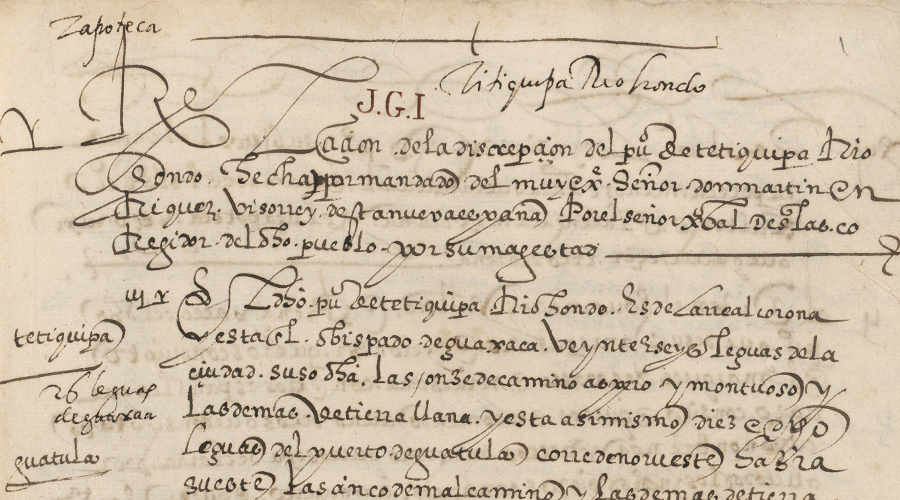 Zapoteca
Titiquipa Rio hondo
J.G.I
Relacion de la discrepcion del pu.o de tetiquipa Rio
Hondo. Hecha por mandado del muy ex.te Señor don martin en
Riquez, Visorrey desta nueva españa Por el señor xpobal de salas co
Regidor del dho pueblo por su magestad
El dho pu.o de tetiquipa Rio hondo. Es de la real corona
tetiquipa
y esta el obispado de guaxaca. Veynte y seys leguas de la
ciudad suso dha, las onze de camino aspero y montuoso y
26 leguas
de guaxaca
Las demas de tierra llana. y esta asimismo diez e ocho
Leguas del puerto de guatula corre de norueste ha
guatula
sueste Las cinco de mal camino y las demas de tierra